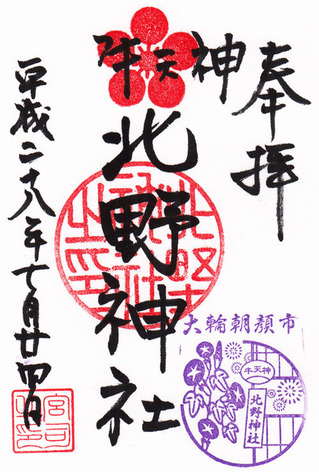 奉拝
牛天神
北野神社
平成二十八年七月廿四日
北野神社之印
宮司之印
大輪朝顔市
牛天神
北野神社